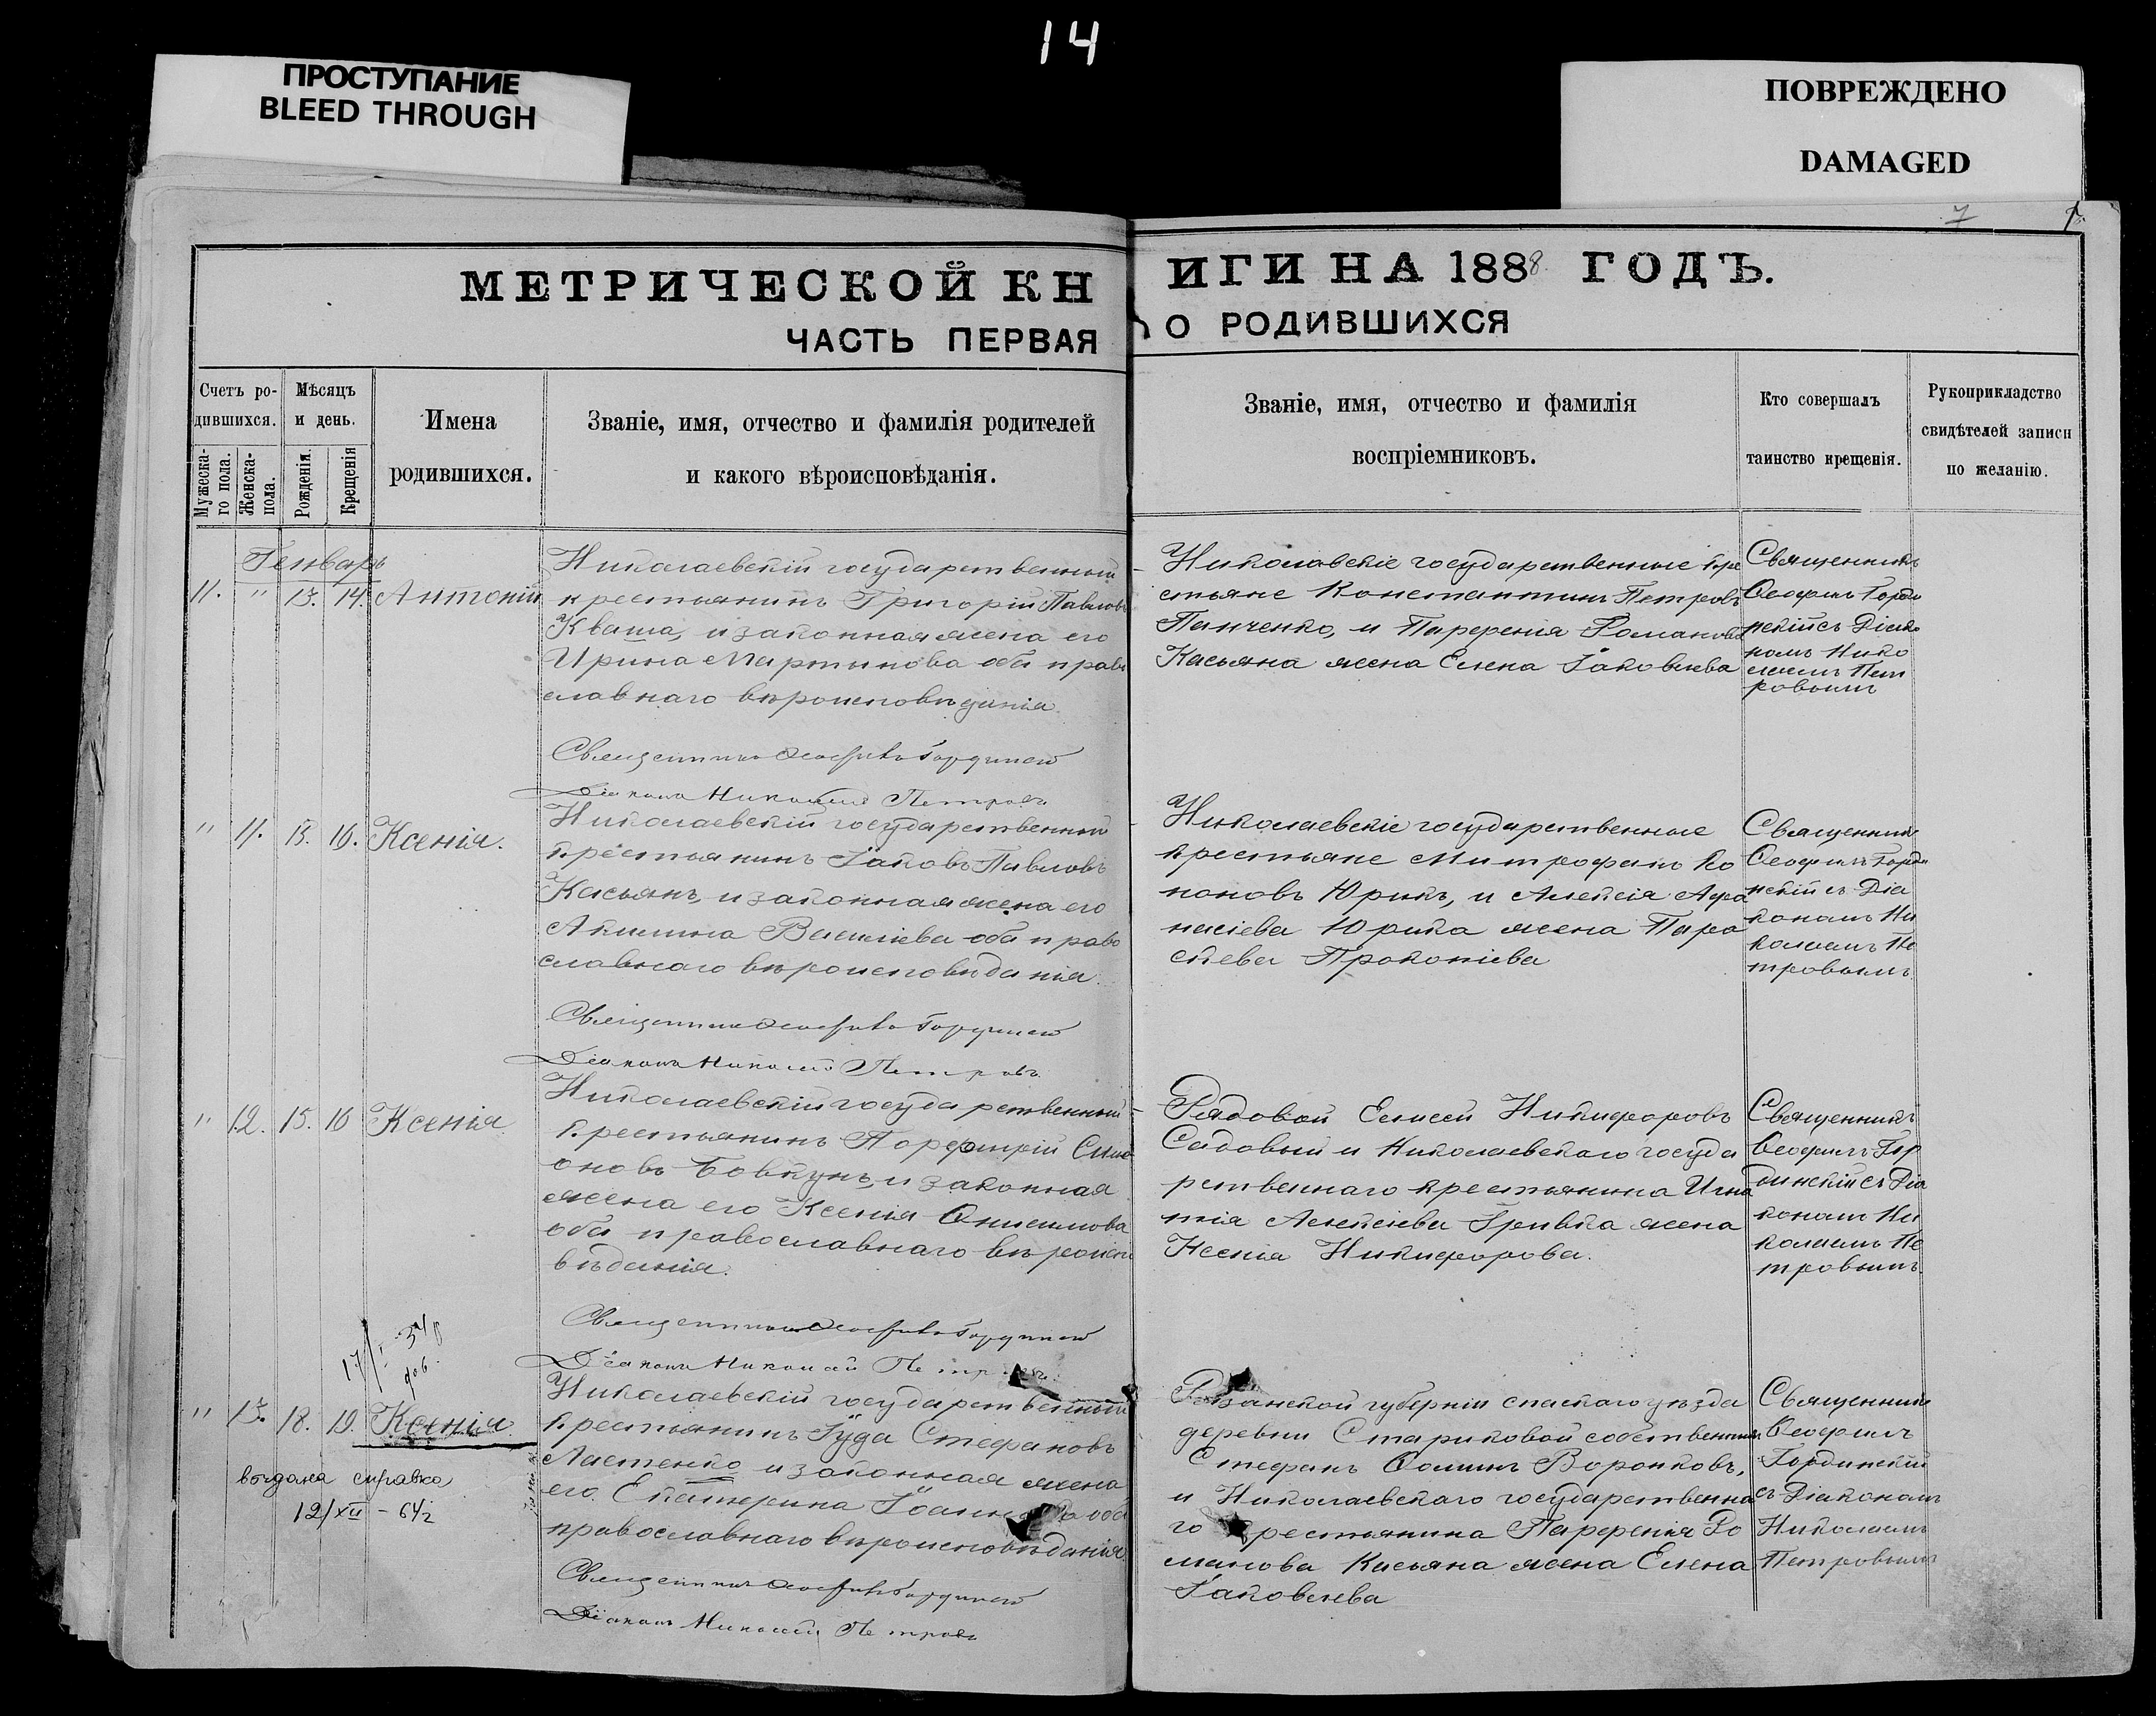 14
ПРОСТУПАНИЕ
BLEED THROUGH
ПОВРЕЖДЕНО
DAMAGED
7
МЕТРИЧЕСКОЙ КН
ИГИ НА 1888 ГОДЪ.
ЧАСТЬ ПЕРВАЯ
О РОДИВШИХСЯ
Счетъ ро-
дившихся.
Мужеска-
го пола.
Женска-
пола.
Мѣсяцъ
и день.
Рожденія.
Крещенія
Имена
родившихся.
Званіе, имя, отчество и фамилія родителей
и какого вѣроисповѣданія.
Званіе, имя, отчество и фамилія
воспріемниковъ.
Кто совершалъ
таинство крещенія.
Рукоприкладство
свидѣтелей записи
по желанію.
Генварь
11. " 13. 14. Антоній
Николаевскій государственный
крестьянинъ Григорій Павловъ
Кваша, и законная жена его
Ирина Мартинова оба право
славнаго вѣроисповѣданія.
Священникъ Ѳеофилъ Гординскій
Діаконъ Николай Петровъ
Николаевскіе государственные кре
стьяне Константинъ Петровъ
Панченко, и Парфенія Романова
Касьяна жена Елена Іаковлева
Священникъ
Ѳеофилъ Горди
нскій съ Діако
номъ Нико
лаемъ Пет
ровымъ
" 11. 15. 16. Ксенія.
Николаевскій государственный
крестьянинъ Іаковъ Павловъ
Касьянъ, и законная жена его
Акилина Василіева оба право
славнаго вѣроисповѣданія.
Священникъ Ѳеофилъ Гординскій
Діаконъ Николай Петровъ
Николаевскіе государственные
крестьяне Митрофанъ Ко
ноновъ Юрикъ, и Алексія Афа
насіева Юрика жена Пара
скева Прокопіева
Священникъ
Ѳеофилъ Горди
нскій съ Діа
кономъ Ни
колаемъ Пе
тровымъ
" 12. 15. 16 Ксенія
Николаевскій государственный
крестьянинъ Порфирій Сим
оновъ Бовкунъ, и законная
жена его Ксенія Онисимова
оба православнаго вѣроиспо
вѣданія.
Священникъ Ѳеофилъ Гординскій
Діаконъ Николай Петровъ
Рядовой Елисей Никифоровъ
Садовый и Николаевскаго госуда
рственнаго крестьянина Игна
тія Алексіева Гривка жена
Ксенія Никифорова.
Священникъ
Ѳеофилъ Гор
динскій съ Діа
кономъ Ни
колаемъ Пе
тровымъ
" 13. 18. 19. Ксенія.
выдана справка
12/XII - 64г
Николаевскій государственный
крестьянинъ Іуда Стефановъ
Ластенко и законная жена
его Екатерина Іоаннова оба
православнаго вѣроисповѣданія
Священникъ Ѳеофилъ Гординскій
Діаконъ Николай Петровъ
Рязанской губерніи спаскаго уѣзда
деревни Стариковой собственникъ
Стефанъ Ѳоминъ Воронковъ,
и Николаевскаго государственна
го крестьянина Парфенія Ро
манова Касьяна жена Елена
Іаковлева
Священникъ
Ѳеофилъ
Гординскій
съ Діакономъ
Николаемъ
Петровымъ